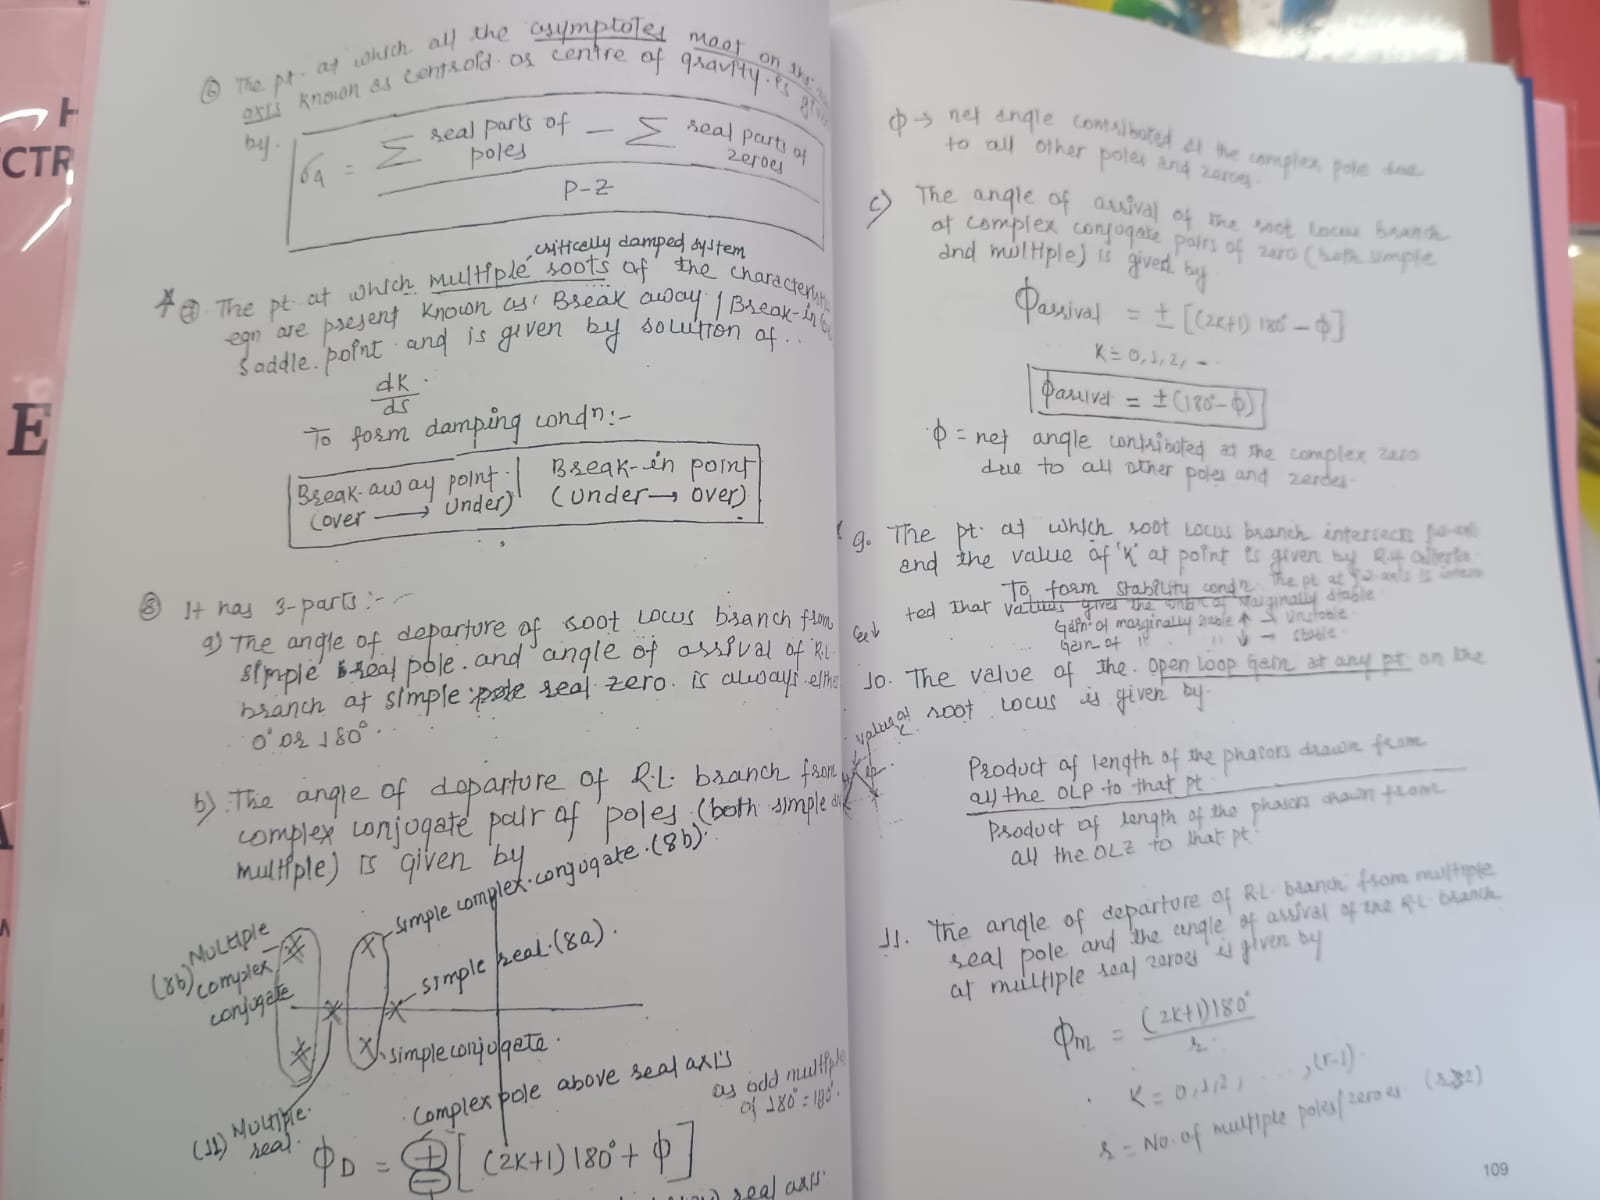 H
ECTR
E
⑥ The pt. at which all the asymptotes meet on the
axis known as centroid. or centre of gravity. is given
by.
σA = ∑ real parts of poles − ∑ real parts of zeroes
P-Z
critically damped system
⑦ The pt. at which multiple roots of the characteristi
eqn are present known as' Break away / Break-in
saddle. point. and is given by solution of..
dK
ds
To form damping condn:-
Break-away point. | Break-in point
(over → under) (under → over)
⑧ It has 3-parts:-
a) The angle of departure of root locus branch from
simple real pole. and angle of arrival of R.L
branch at simple real zero. is always either
0° or 180°.
b) The angle of departure of R.L. branch from
complex conjugate pair of poles. (both simple
multiple) is given by
simple complex. conjugate. (8b).
simple real. (8a).
(8b) Multiple
complex
conjugate
simple conjugate.
(11) Multiple.
real.
Complex pole above real axis
as odd multiple
of 180° = 180°.
ΦD = ± [ (2K+1) 180° + Φ ]
real axis.
Φ → net angle contributed at the complex pole due
to all other poles and zeroes.
c) The angle of arrival of the root locus branch
at complex conjugate pairs of zero (both simple
and multiple) is gived by
Φarrival = ± [(2K+1) 180° − Φ]
K = 0, 1, 2, -
Φarrival = ± (180° − Φ)
Φ = net angle contributed at the complex zero
due to all other poles and zeroes.
9. The pt. at which root locus branch intersects jω-axis
and the value of 'K' at point is given by R.H criteria
To form stability condn. The pt at jω-axis is intersec
ted that values gives the of Marginally stable
Gain of marginally stable ↑ → Unstable
Gain of '' '' ↓ → stable.
10. The value of the. open loop Gain at any pt on the
root locus is given by.
value of
K
Product of length of the phasors drawn from
all the OLP to that pt
Product of length of the phasors drawn from
all the OLZ to that pt.
11. The angle of departure of R.L. branch from multiple
real pole and the angle of arrival of the R.L branch
at multiple real zeroes is given by
Φm = (2K+1)180°
r
K = 0, 1, 2, ...., (r-1).
r = No. of multiple poles/zeroes (r≥2)
109